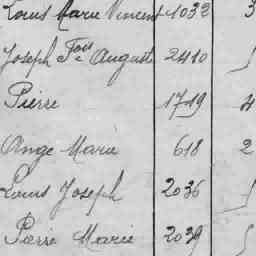 Louis Marie Vincent 1032 3
Joseph Fois Auguste 2410 1
Pierre 1749 4
Ange Marie 618 2
Louis Joseph 2036 1
Pierre Marie 2039 1